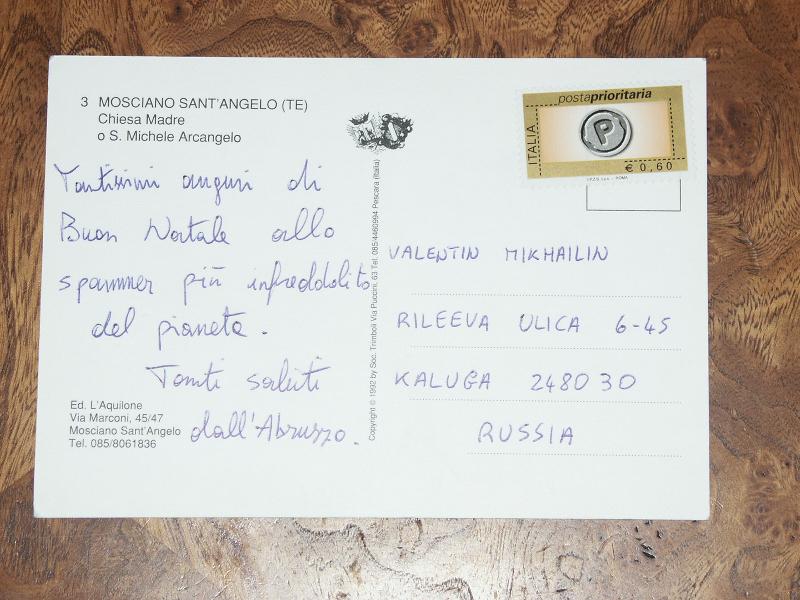 3 MOSCIANO SANT'ANGELO (TE)
Chiesa Madre
o S. Michele Arcangelo
Tantissimi auguri di
Buon Natale allo
spammer più infreddolito
del pianeta.
Tanti saluti
dall'Abruzzo.
Ed. L'Aquilone
Via Marconi, 45/47
Mosciano Sant'Angelo
Tel. 085/8061836
Copyright © 1992 by Soc. Trimboli Via Puccini, 63 Tel. 085/4460994 Pescara (Italia)
postaprioritaria
ITALIA
P
€ 0,60
I.P.Z.S. S.p.A. - ROMA
VALENTIN MIKHAILIN
RILEEVA ULICA 6-45
KALUGA 248030
RUSSIA